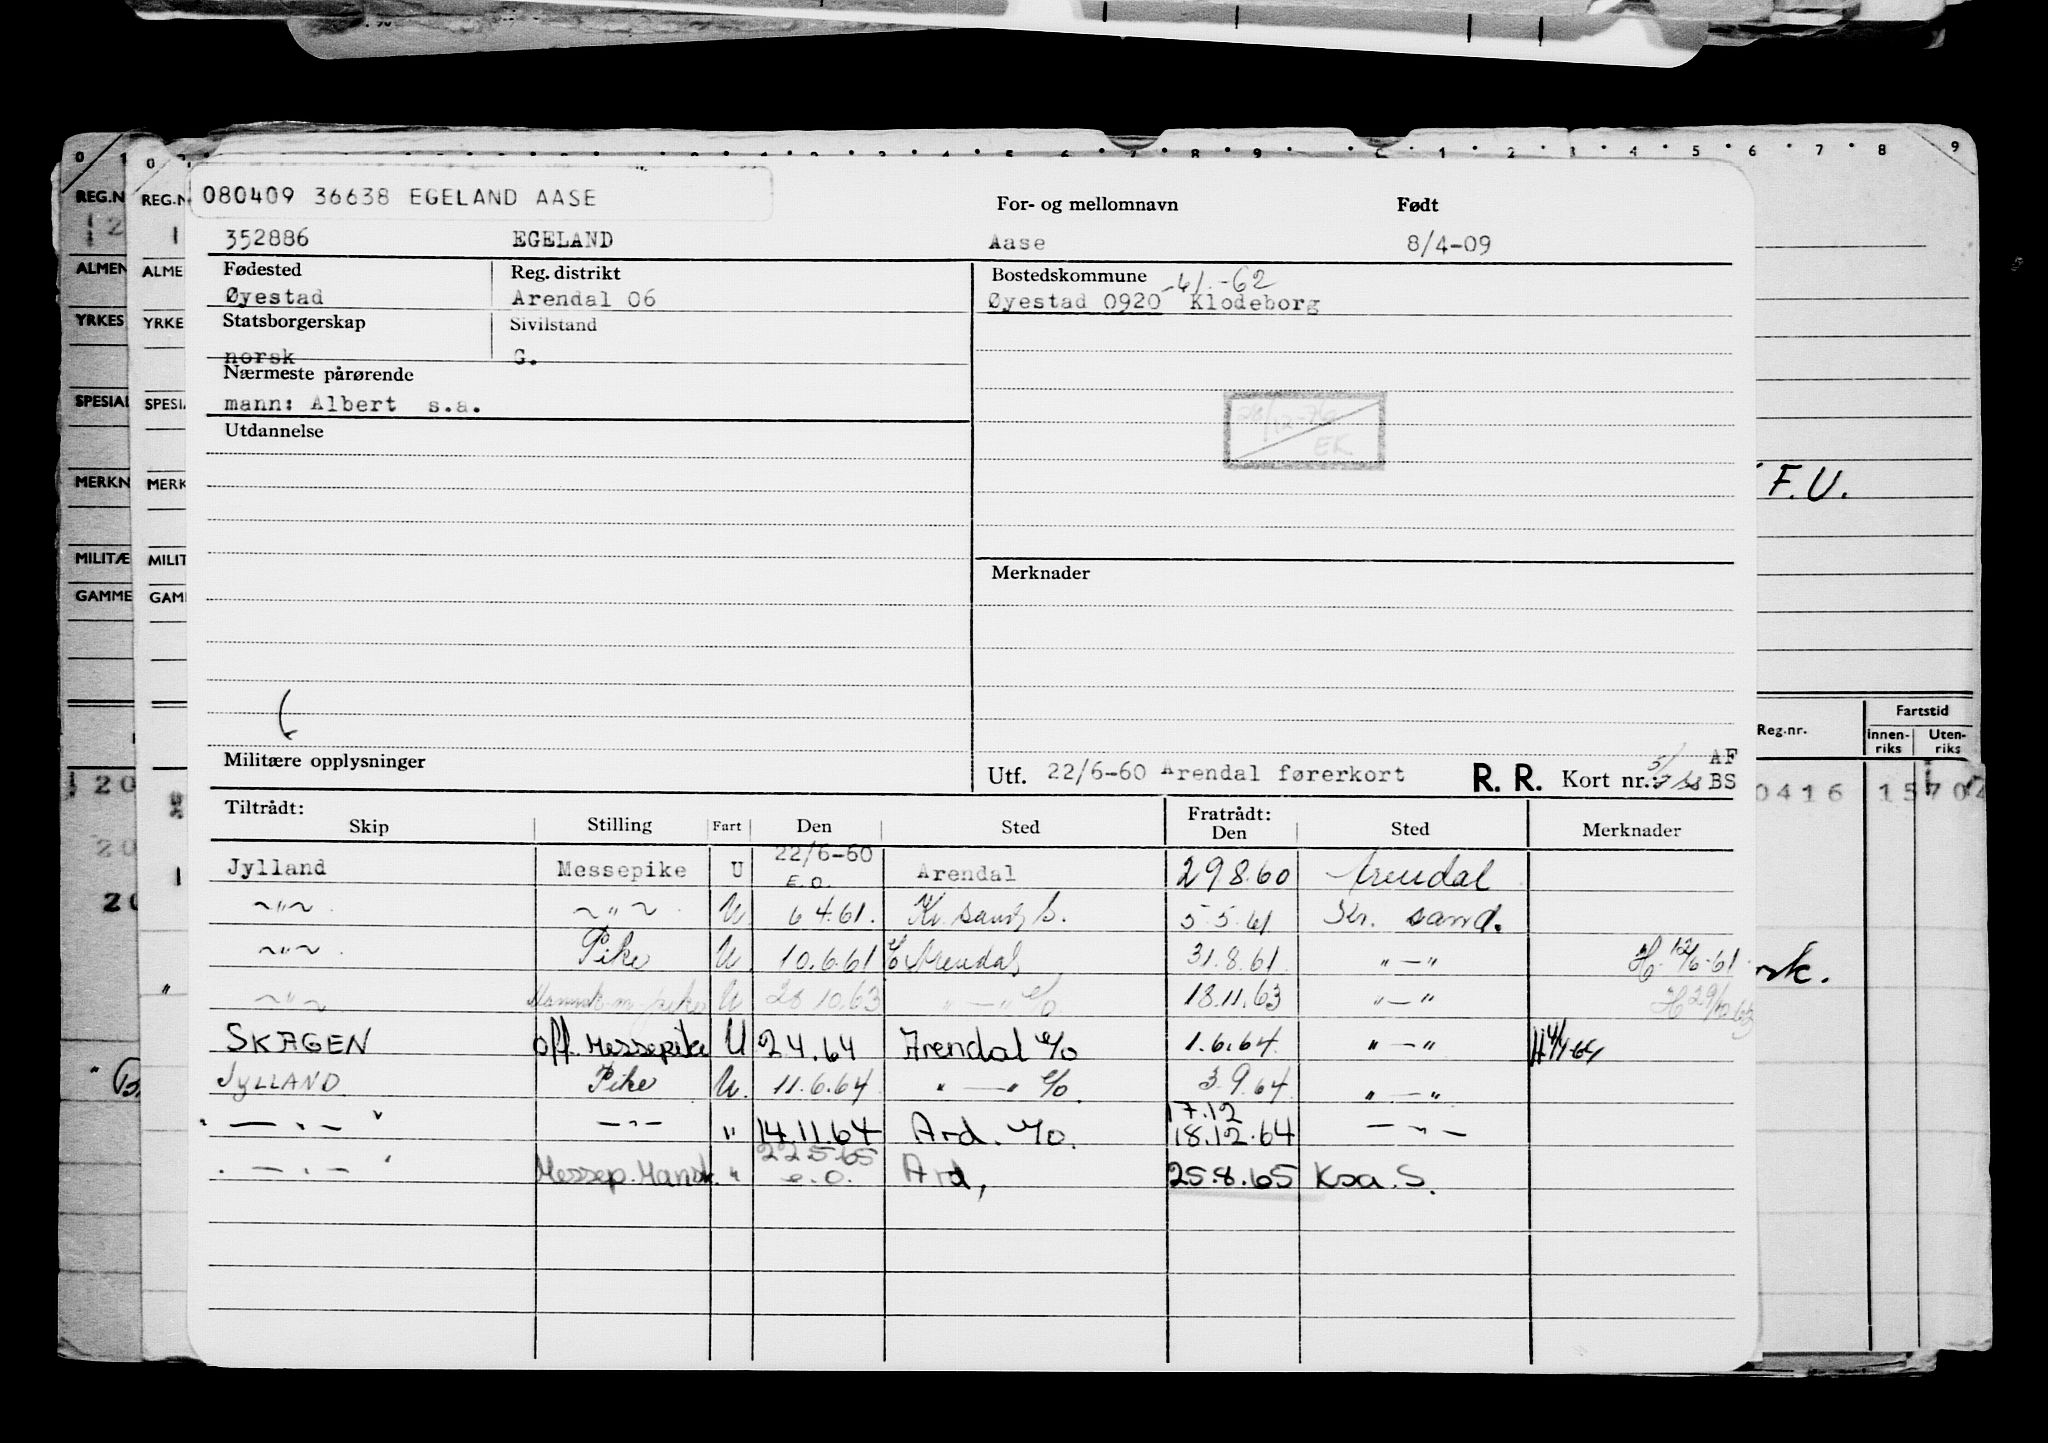 0 1 0 5 6 7 8 9 C 1 2 3 4 5 6 7 8 9
080409 36638 EGELAND AASE
For- og mellomnavn Født
352886 EGELAND Aase 8/4-09
Fødested Reg. distrikt Bostedskommune
-41.-62
Øyestad Arendal 06 Øyestad 0920 Klodeborg
Statsborgerskap Sivilstand
norsk G.
Nærmeste pårørende
mann: Albert s.a.
Utdannelse
EK
Merknader
Militære opplysninger
Utf. 22/6-60 Arendal førerkort R. R. Kort nr.: AF BS
Tiltrådt: Fratrådt:
Skip Stilling Fart Den Sted Den Sted Merknader
Jylland Messepike U 22/6-60 E.O. Arendal 29.8.60 Arendal
~"~ ~"~ U 6.4.61. Kr. sand S. 5.5.61 Kr. sand.
~"~ Pike U 10.6.61 Arendal 31.8.61 "—" H. 12/6-61
~"~ U 28.10.63 "—" 18.11.63 "—"
SKAGEN Off. Messepike U 2.4.64 Arendal e/o 1.6.64 "—"
JYLLAND Pike U. 11.6.64 "—" e/o. 3.9.64 "—"
"—"—" —"— " 14.11.64 Ard. e/o. 17.12 18.12.64 —"—
"—"—" Messep. Mansk. " 22.5.65 e.o. Ard, 25.8.65 Ksa. S.
REG.N
REG.N
ALMEN
ALME
YRKES
YRKE
SPESIAL
SPESI
MERKN
MERK
MILITÆ
MILIT
GAMME
GAM
20
20
20
F.U.
Reg.nr. Fartstid
Innenriks Utenriks
0416